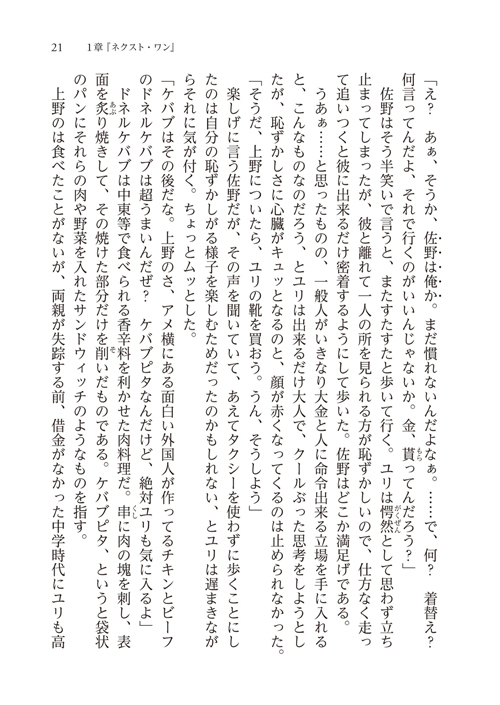 21　1章『ネクスト・ワン』
「え？　あぁ、そうか、佐野は俺か。まだ慣れないんだよなぁ。……で、何？　着替え？
何言ってんだよ、それで行くのがいいんじゃないか。金、貰ってんだろう？」
　佐野はそう半笑いで言うと、またすたすたと歩いて行く。ユリは愕然として思わず立ち
止まってしまったが、彼と離れて一人の所を見られる方が恥ずかしいので、仕方なく走っ
て追いつくと彼に出来るだけ密着するようにして歩いた。佐野はどこか満足げである。
　うあぁ……と思ったものの、一般人がいきなり大金と人に命令出来る立場を手に入れる
と、こんなものなのだろう、とユリは出来るだけ大人で、クールぶった思考をしようとし
たが、恥ずかしさに心臓がキュッとなるのと、顔が赤くなってくるのは止められなかった。
「そうだ、上野についたら、ユリの靴を買おう。うん、そうしよう」
　楽しげに言う佐野だが、その声を聞いていて、あえてタクシーを使わずに歩くことにし
たのは自分の恥ずかしがる様子を楽しむためだったのかもしれない、とユリは遅まきなが
らそれに気が付く。ちょっとムッとした。
「ケバブはその後だな。上野のさ、アメ横にある面白い外国人が作ってるチキンとビーフ
のドネルケバブは超うまいんだぜ？　ケバブピタなんだけど、絶対ユリも気に入るよ」
　ドネルケバブは中東等で食べられる香辛料を利かせた肉料理だ。串に肉の塊を刺し、表
面を炙り焼きして、その焼けた部分だけを削いだものである。ケバブピタ、というと袋状
のパンにそれらの肉や野菜を入れたサンドウィッチのようなものを指す。
　上野のは食べたことがないが、両親が失踪する前、借金がなかった中学時代にユリも高